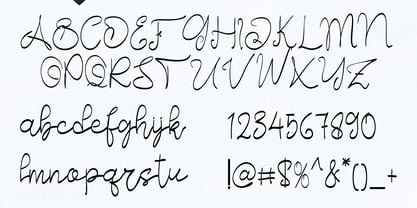 ABCDEFGHIJKLMN
OPQRSTUVWXYZ
abcdefghijk
1234567890
lmnopqrstu
!@#$%^&*()_+